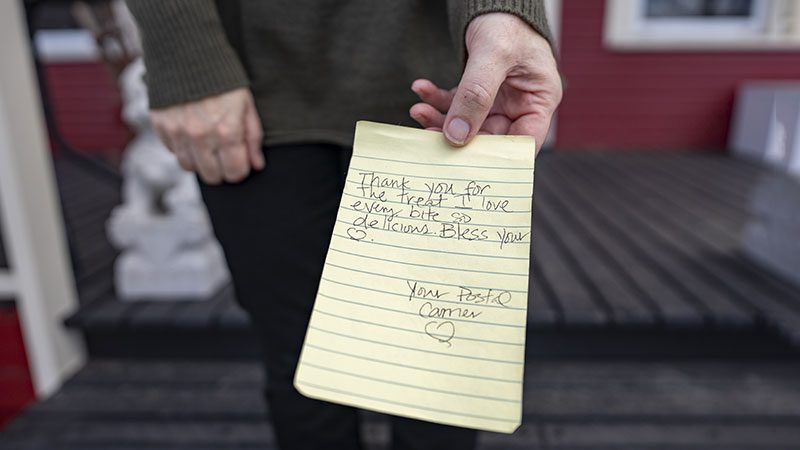 Thank you for
the treat I love
every bite so
delicious. Bless your
♡.
Your Postal
Carrier
♡